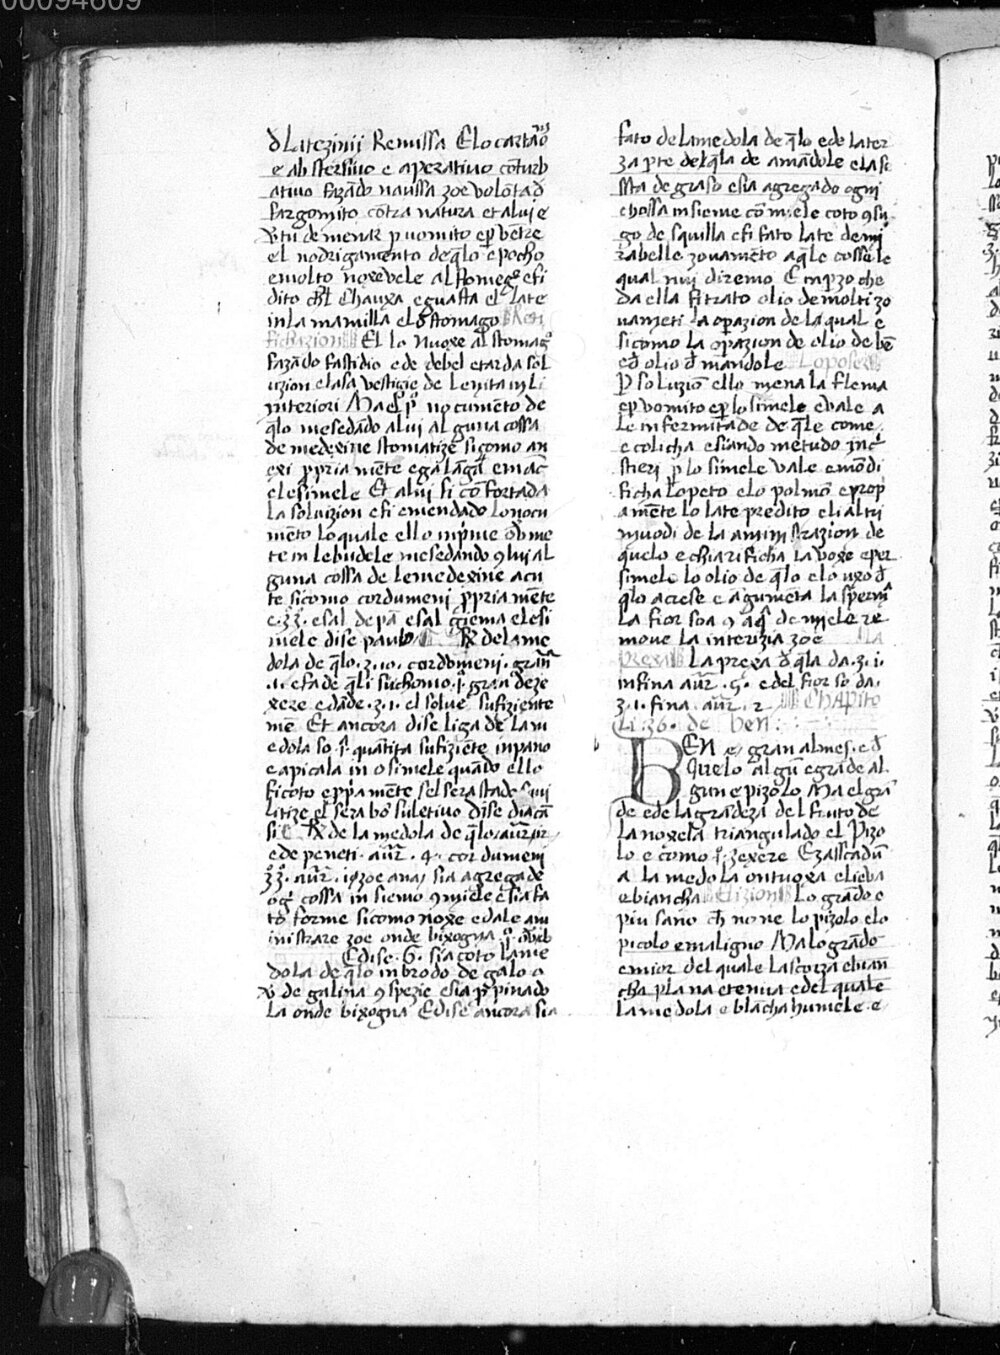 00094609
d latezinii Remissa E lo cartāo
e abstersiuo e aperatiuo cōturb
atiuo fazādo naussa zoe volōtad
far gomito cōtra natura et alui e
vtu de menar p uomito ep vētre
el nodrigamento de qlo e pocho
e molto noxevele al stomego e fi
dito chl chauxa e guasta el late
in la mamilla el stomago Reti
fichazion El lo nuoxe al stomago
fazādo fastidio e de debel e tarda sol
uzion e lasa vestigie de lenita in li
interiori Ma el po nocumēto de
qlo mesedādo a lui alguna cossa
de medexine stomatize sicomo an
exi ppria mēte e galāga e mac
e le simele Et a lui fi cōfortada
la soluizion e fi emendado lo nocu
mēto lo quale ello inprime
te in le budele mesedando 9 lui al
guna cossa de le medexine acu
te sicomo cordumeni ppria mente
e ʒʒ. e sal de pā e sal giema e le si
mele dise paulo ℞ de la me
dola de qlo .ʒ.10. cordumeni. gran
.1. e fa de qli suchomo. graa deze
xere e dade .ʒ.1. el solue sufiziente
mē Et ancora dise liga de la m
edola so quātita sufiziēte in pano
e apicala in osimele quādo ello
fi coto e ppamēte sel sera stade squi
litize el sera bō suletiuo dise diacā
si ℞ de la medola de qlo aur
e de peneti. aur. 4. cordumeni
ʒʒ. aur. zoe ana sia agregade
og cossa in siemo 9 miele e sia fa
to forme sicomo noxe e dale am
inistrare zoe onde bixogna
E dise. G. sia coto la me
dola de qlo in brodo de galo o
v de galina 9 spezie e sia ppinado
la onde bixogna E dise ancora sia
fato de la medola de qlo e de la ter
za pte de la qla de amādole e la si
sta de graso e sia agregado ogni
chossa insieme cō miele coto 9 su
go de squilla e fi fato late de mi
rabelle zouamēto a qle cosse le
qual nui diremo E inpzo che
da ella fi trato olio de molti zo
uameti la opazion de la qual e
sicomo la opazion de olio de bē
ed olio d mandole Lo pose
P soluziō ello mena la flema
ep vomito ep lo simele e vale a
le infermitade de qle come
e colicha e siando metudo in c
stieri p lo simele vale e mōdi
ficha lo peto e lo polmō e prop
amēte lo late predito e li altri
muodi de la aministrazion de
quelo e chiarificha la voxe e per
simele lo olio de qlo e lo uxo d
qlo acrese e agumēta la sperma
la fior soa 9 aqa de miele re
moue la interizia zoe La
prexa La prexa d qla da .ʒ.1.
infina aur. 5. e del fior so da.
ʒ.1. fina aur. 2 Chapito
li. 36. de ben:
BEN e gran al mes. e d
quelo algū e grāde al
gun e pizolo Ma el grā
de e de la grādeza del fruto de
la noxela triangulado el pizo
lo e como zexere E zasscadū
a la medola ontuoxa e lieba
e biancha Elizion Lo grādo e
piu sano ch none lo pizolo e lo
picolo e maligno Ma lo grādo
e mior del quale la scorza e bian
cha plana e tenua e del quale
la medola e blācha humele e